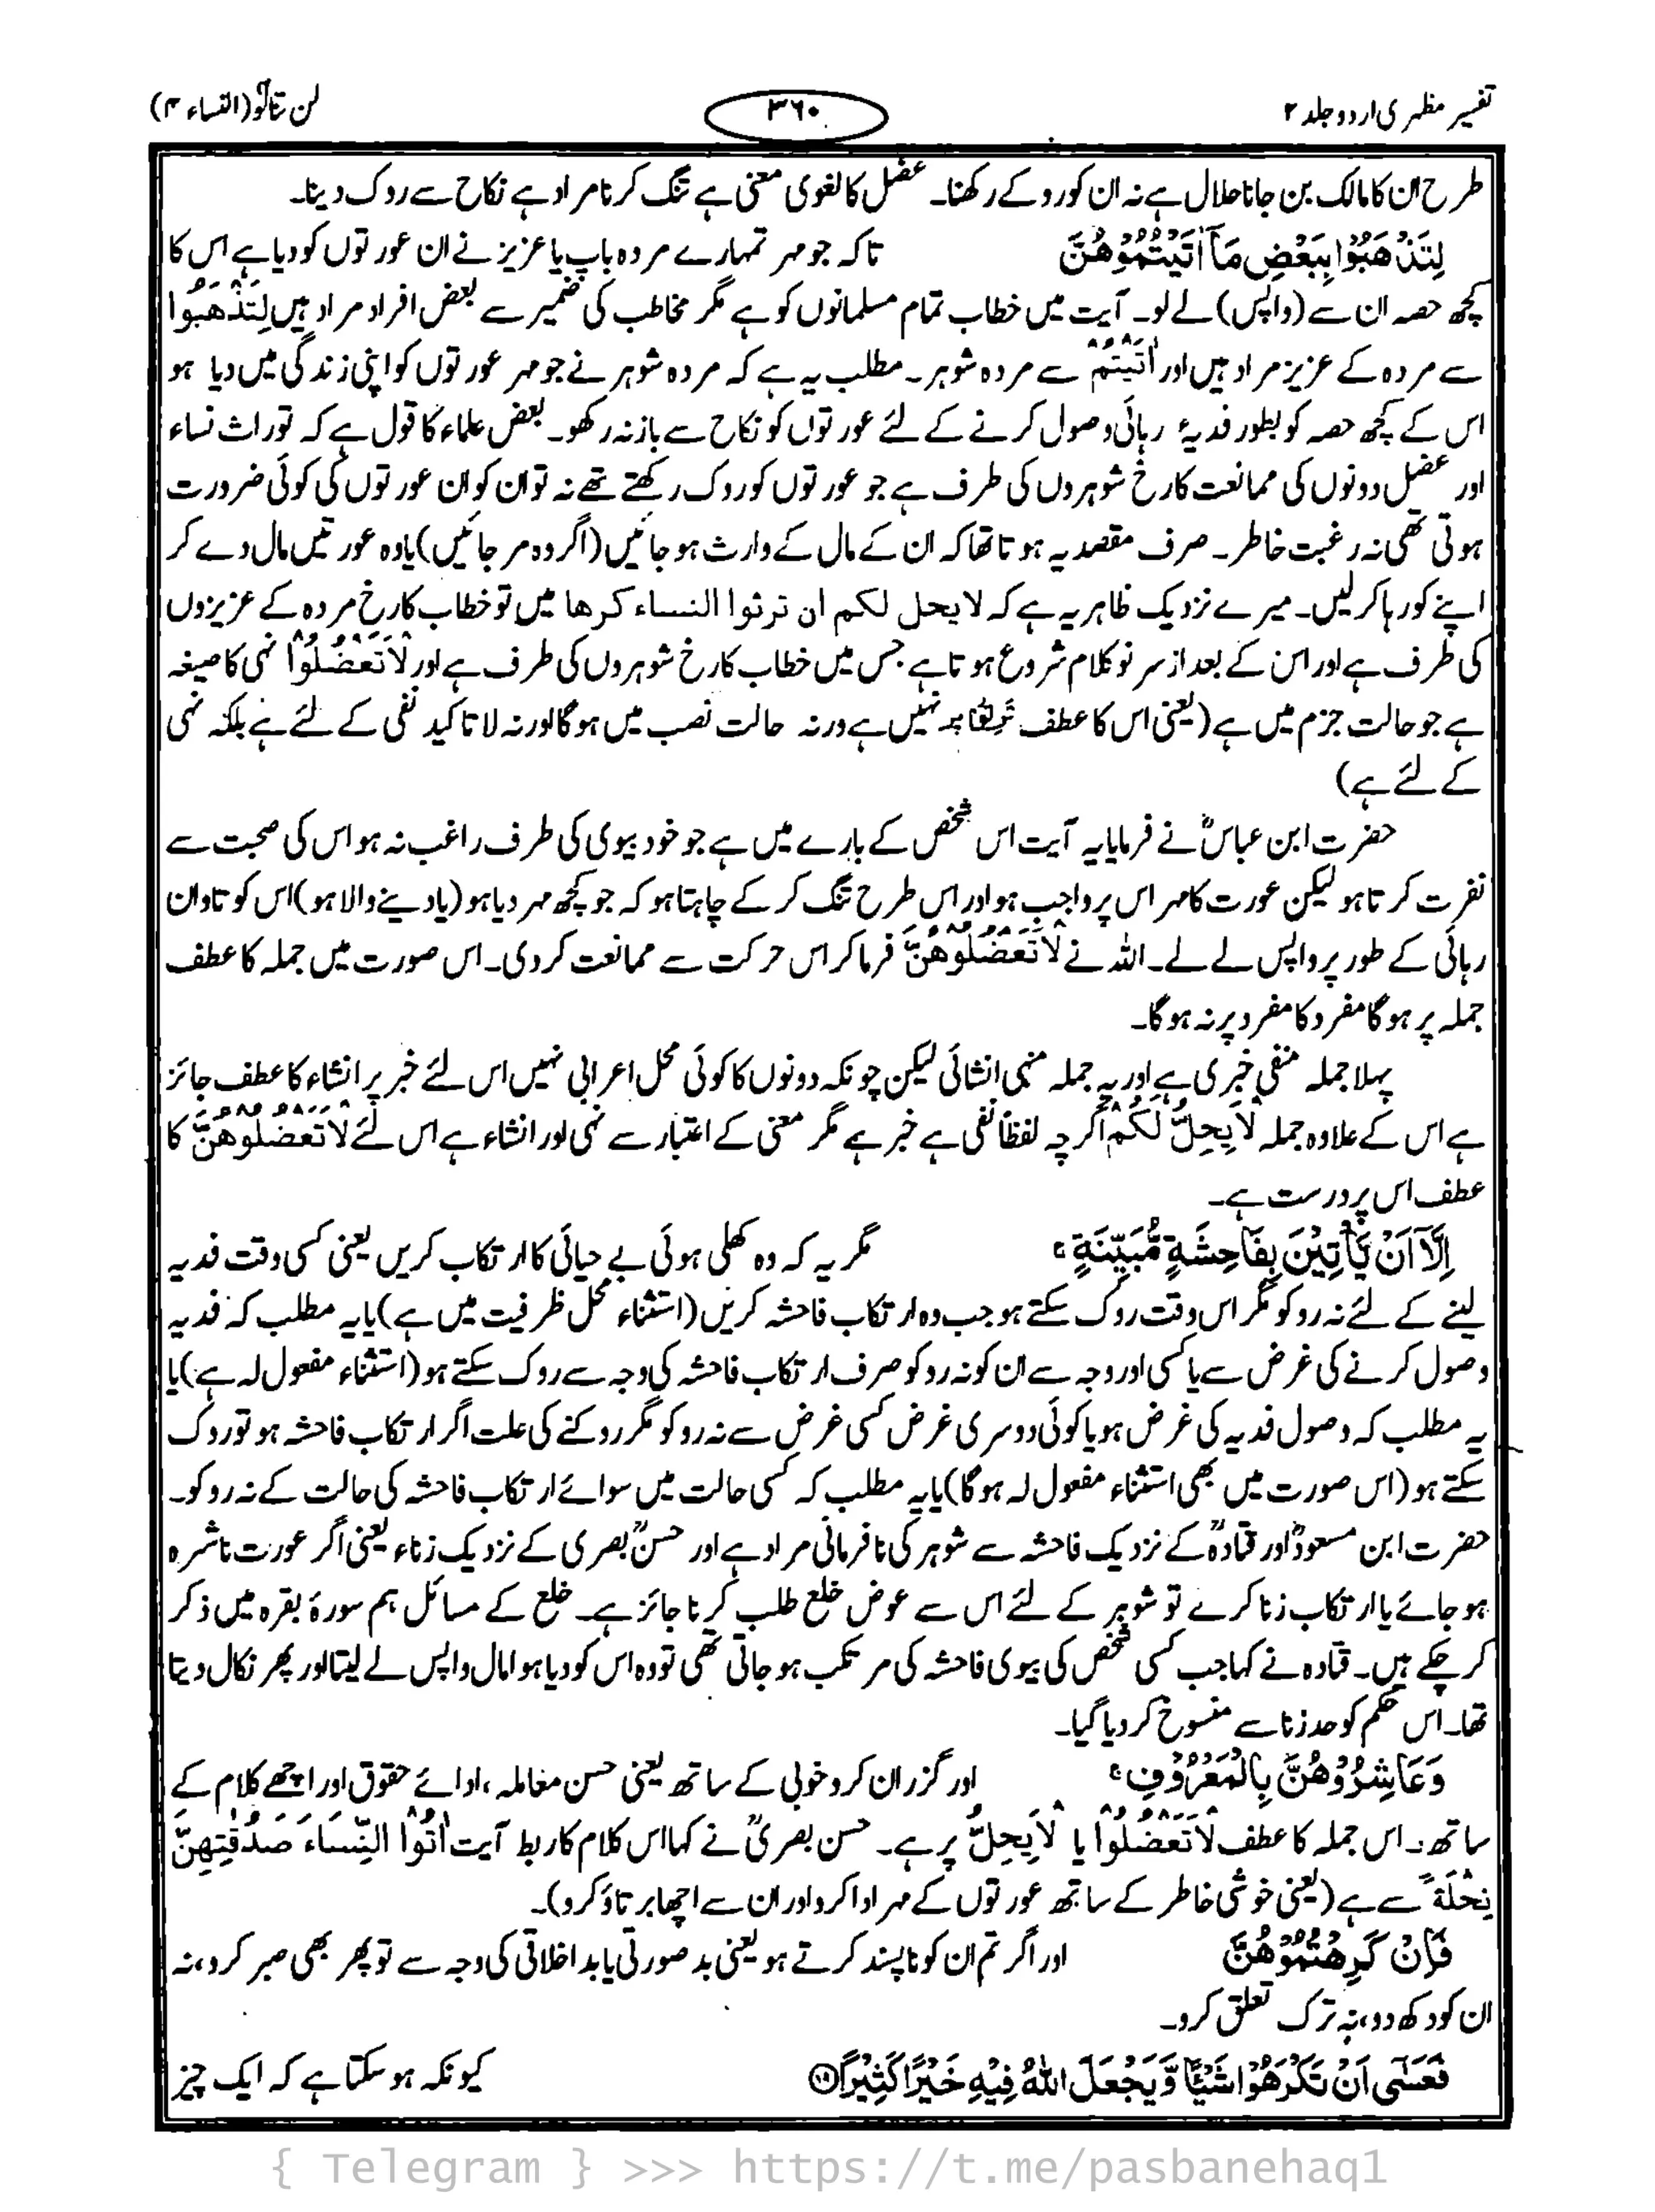 تفسیر مظہری اردو جلد ۲
۳۶۰
لن تنالو (النساء ۴)
طرح ان کا مالک بن جانا حلال ہے نہ ان کو روکے رکھنا۔ عضل کا لغوی معنی ہے تنگ کرنا مراد ہے نکاح سے روک دینا۔
لِتَذْهَبُوْا بِبَعْضِ مَآ اٰتَيْتُمُوْهُنَّ تاکہ جو مہر تمہارے مردہ باپ یا عزیز نے ان عورتوں کو دیا ہے اس کا
کچھ حصہ ان سے (واپس) لے لو۔ آیت میں خطاب تمام مسلمانوں کو ہے مگر مخاطب کی ضمیر سے بعض افراد مراد ہیں لِتَذْهَبُوْا
سے مردہ کے عزیز مراد ہیں اور اٰتَيْتُمْ سے مردہ شوہر۔ مطلب یہ ہے کہ مردہ شوہر نے جو مہر عورتوں کو اپنی زندگی میں دیا ہو
اس کے کچھ حصہ کو بطور فدیۂ رہائی وصول کرنے کے لئے عورتوں کو نکاح سے باز نہ رکھو۔ بعض علماء کا قول ہے کہ توراث نساء
اور عضل دونوں کی ممانعت کا رخ شوہروں کی طرف ہے جو عورتوں کو روک رکھتے تھے نہ تو ان کو ان عورتوں کی کوئی ضرورت
ہوتی تھی نہ رغبت خاطر۔ صرف مقصد یہ ہوتا تھا کہ ان کے مال کے وارث ہو جائیں (اگر وہ مر جائیں) یا وہ عورتیں مال دے کر
اپنے کو رہا کر لیں۔ میرے نزدیک ظاہر یہ ہے کہ لا یحل لکم ان ترثوا النساء کرها میں تو خطاب کا رخ مردہ کے عزیزوں
کی طرف ہے اور اس کے بعد از سر نو کلام شروع ہوتا ہے جس میں خطاب کا رخ شوہروں کی طرف ہے اور لَا تَعْضُلُوْا نہی کا صیغہ
ہے جو حالت جزم میں ہے (یعنی اس کا عطف پر نہیں ہے ورنہ حالت نصب میں ہوگا اور نہ لا تاکید نفی کے لئے ہے بلکہ نہی
کے لئے ہے)
حضرت ابن عباسؓ نے فرمایا یہ آیت اس شخص کے بارے میں ہے جو خود بیوی کی طرف راغب نہ ہو اس کی صحبت سے
نفرت کرتا ہو لیکن عورت کا مہر اس پر واجب ہو اور اس طرح تنگ کر کے چاہتا ہو کہ جو کچھ مہر دیا ہو (یا دینے والا ہو) اس کو تاوان
رہائی کے طور پر واپس لے لے۔ اللہ نے لَا تَعْضُلُوْهُنَّ فرما کر اس حرکت سے ممانعت کر دی۔ اس صورت میں جملہ کا عطف
جملہ پر ہوگا مفرد کا مفرد پر نہ ہوگا۔
پہلا جملہ منفی خبری ہے اور یہ جملہ منہی انشائی لیکن چونکہ دونوں کا کوئی محل اعرابی نہیں اس لئے خبر پر انشاء کا عطف جائز
ہے اس کے علاوہ جملہ لَا يَحِلُّ لَكُمْ اگرچہ لفظاً نفی ہے خبر ہے مگر معنی کے اعتبار سے نہی اور انشاء ہے اس لئے لَا تَعْضُلُوْهُنَّ کا
عطف اس پر درست ہے۔
اِلَّآ اَنْ يَّأْتِيْنَ بِفَاحِشَةٍ مُّبَيِّنَةٍ ۚ مگر یہ کہ وہ کھلی ہوئی بے حیائی کا ارتکاب کریں یعنی کسی وقت فدیہ
لینے کے لئے نہ روکو مگر اس وقت روک سکتے ہو جب وہ ارتکاب فاحشہ کریں (استثناء محل ظرفیت میں ہے) یا یہ مطلب کہ فدیہ
وصول کرنے کی غرض سے یا کسی اور وجہ سے ان کو نہ روکو صرف ارتکاب فاحشہ کی وجہ سے روک سکتے ہو (استثناء مفعول لہ ہے) یا
یہ مطلب کہ وصول فدیہ کی غرض ہو یا کوئی دوسری غرض کسی غرض سے نہ روکو مگر روکنے کی علت اگر ارتکاب فاحشہ ہو تو روک
سکتے ہو (اس صورت میں بھی استثناء مفعول لہ ہوگا) یا یہ مطلب کہ کسی حالت میں سوائے ارتکاب فاحشہ کی حالت کے نہ روکو۔
حضرت ابن مسعودؓ اور قتادہؒ کے نزدیک فاحشہ سے شوہر کی نافرمانی مراد ہے اور حسنؒ بصری کے نزدیک زناء یعنی اگر عورت ناشزہ
ہو جائے یا ارتکاب زنا کرے تو شوہر کے لئے اس سے عوض خلع طلب کرنا جائز ہے۔ خلع کے مسائل ہم سورۂ بقرہ میں ذکر
کر چکے ہیں۔ قتادہ نے کہا جب کسی شخص کی بیوی فاحشہ کی مرتکب ہو جاتی تھی تو وہ اس کو دیا ہوا مال واپس لے لیتا اور پھر نکال دیتا
تھا۔ اس حکم کو حد زنا سے منسوخ کر دیا گیا۔
وَعَاشِرُوْهُنَّ بِالْمَعْرُوْفِ ۚ اور گزران کرو خوبی کے ساتھ یعنی حسن معاملہ، ادائے حقوق اور اچھے کلام کے
ساتھ۔ اس جملہ کا عطف لَا تَعْضُلُوْا یا لَا يَحِلُّ پر ہے۔ حسن بصریؒ نے کہا اس کلام کا ربط آیت اٰتُوا النِّسَاءَ صَدُقٰتِهِنَّ
نِحْلَةً سے ہے (یعنی خوشی خاطر کے ساتھ عورتوں کے مہر ادا کرو اور ان سے اچھا برتاؤ کرو)۔
فَاِنْ كَرِهْتُمُوْهُنَّ اور اگر تم ان کو ناپسند کرتے ہو یعنی بدصورتی یا بداخلاقی کی وجہ سے تو پھر بھی صبر کرو، نہ
ان کو دکھ دو، نہ ترک تعلق کرو۔
فَعَسٰٓى اَنْ تَكْرَهُوْا شَيْـًٔا وَّيَجْعَلَ اللّٰهُ فِيْهِ خَيْرًا كَثِيْرًا ۝۱۹ کیونکہ ہو سکتا ہے کہ ایک چیز
{ Telegram } >>> https://t.me/pasbanehaq1